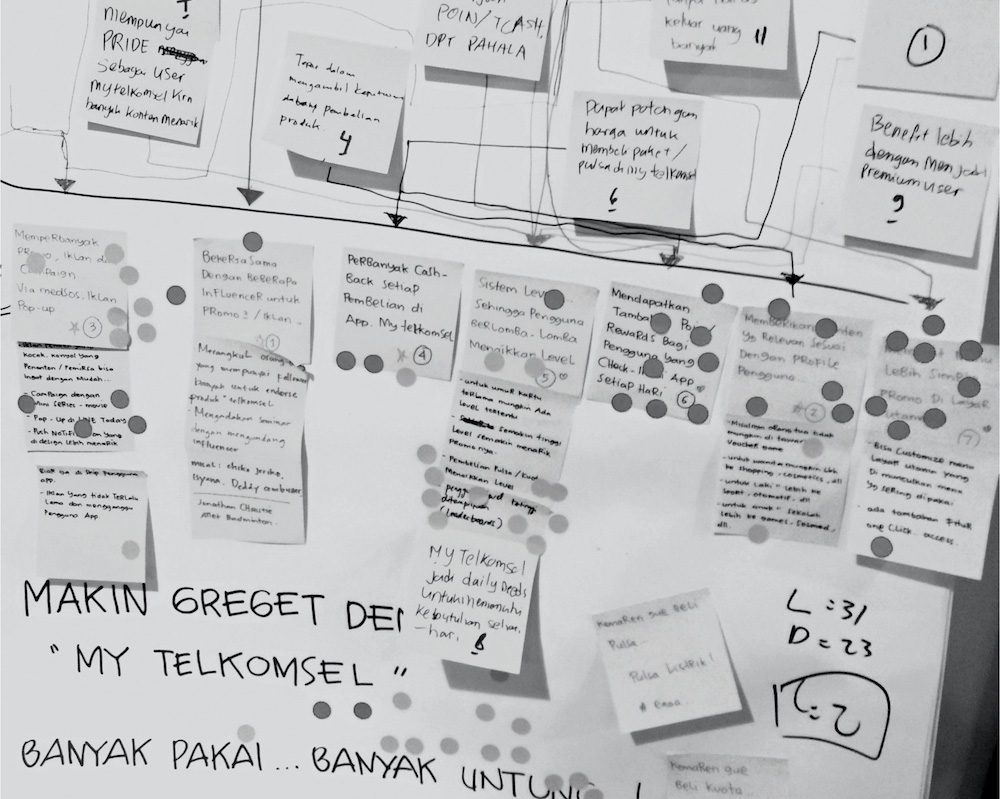 mempunyai
PRIDE
sebagai user
mytelkomsel krn
banyak konten menarik
Tepat dalam
mengambil keputusan
pembelian
produk.
4
POIN/TCASH,
DPT PAHALA
keluar yang
banyak
11
1
Dapat potongan
harga untuk
membeli paket/
pulsa di my telkomsel
6
Benefit lebih
dengan menjadi
premium user
9
Memperbanyak
Promo, Iklan
Campaign
Via medsos, Iklan
Pop-up
3
kocak, komsel yang
Penonton / Pemirsa bisa
Ingat dengan Mudah...
- Campaign dengan
Mini series - movie
- Pop-up di LINE Today
- Push Notif yang
di design lebih menarik
app.
- Iklan yang tidak terlalu
Lama dan mengganggu
Pengguna App
Bekerja sama
Dengan Beberapa
Influencer untuk
Promo / Iklan -
1
Merangkul orang
yang mempunyai follower
banyak untuk endorse
produk telkomsel
- Mengadakan seminar
dengan mengundang
influencer
misal: choky jericho,
Isyana, Deddy corbuzier
Jonathan Christie
Atlet Badminton.
Perbanyak Cash-
Back setiap
Pembelian di
App. My telkomsel
4
Sistem Level
Sehingga Pengguna
Berlomba-Lomba
Menaikkan Level
5
- untuk umur kartu
terlama mungkin Ada
level tertentu
- semakin tinggi
level semakin menarik
Promo nya.
- Pembelian Pulsa / Kuota
Menaikkan Level
ditampilkan
(leaderboards)
My Telkomsel
jadi daily needs
untuk memenuhi
kebutuhan sehari
-hari.
8
Mendapatkan
Tambahan Poin/
Rewards Bagi
Pengguna yang
Check-In App
setiap Hari
6
Memberikan Konten
yg Relevan Sesuai
Dengan Profile
Pengguna
2
- Misalnya
voucher game
- untuk wanita mungkin lbh
ke shopping, cosmetics, dll
- untuk Laki" lebih ke
Sport, otomotif, dll
- untuk anak" sekolah
lebih ke games, sosmed,
dll.
Menu
Lebih Simple
Promo Di Layar
Utama
7
- Bisa Customize menu
Layar utama yang
Di munculkan menu
yg sering dipakai.
- ada tambahan fitur
one click access.
MAKIN GREGET DEN
"MY TELKOMSEL"
BANYAK PAKAI... BANYAK UNTUNG
Kemaren gue beli
Pulsa...
Pulsa Listrik!
# Eaaa...
L = 31
D = 23
Kemaren gue
beli kuota...